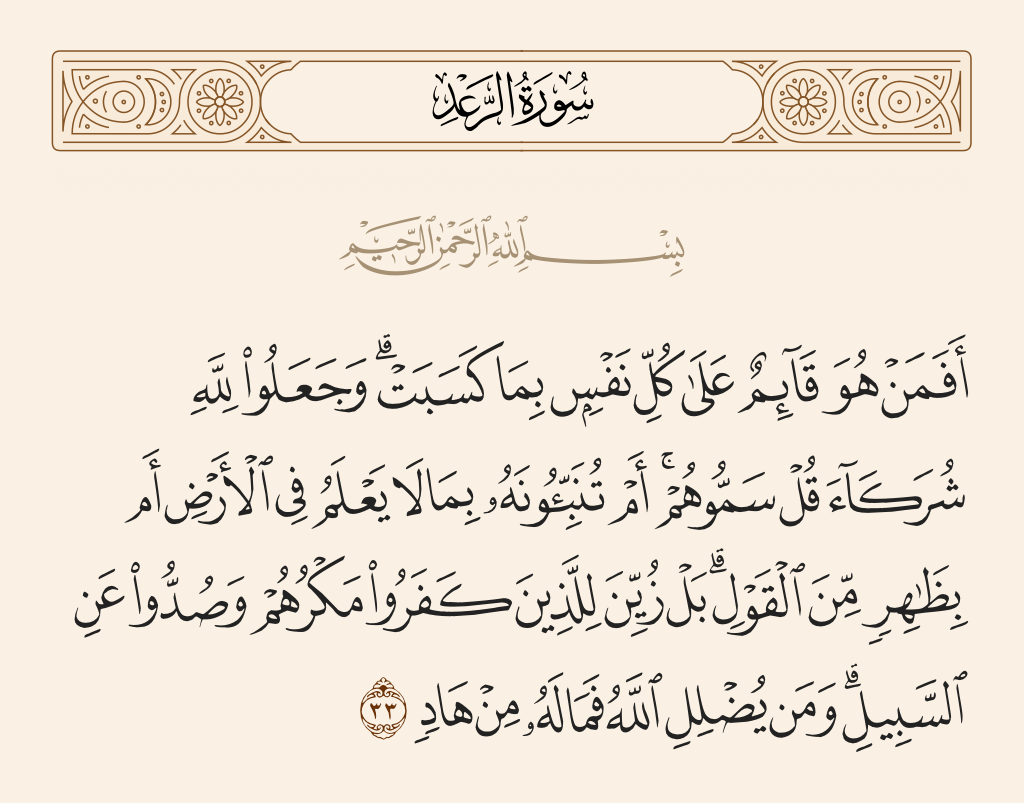 سُورَةُ الرَّعْدِ
بِسْمِ ٱللَّهِ ٱلرَّحْمَٰنِ ٱلرَّحِيمِ
أَفَمَنْ هُوَ قَآئِمٌ عَلَىٰ كُلِّ نَفْسٍۭ بِمَا كَسَبَتْ ۗ وَجَعَلُوا۟ لِلَّهِ
شُرَكَآءَ قُلْ سَمُّوهُمْ ۚ أَمْ تُنَبِّـُٔونَهُۥ بِمَا لَا يَعْلَمُ فِى ٱلْأَرْضِ أَم
بِظَـٰهِرٍ مِّنَ ٱلْقَوْلِ ۗ بَلْ زُيِّنَ لِلَّذِينَ كَفَرُوا۟ مَكْرُهُمْ وَصُدُّوا۟ عَنِ
ٱلسَّبِيلِ ۗ وَمَن يُضْلِلِ ٱللَّهُ فَمَا لَهُۥ مِنْ هَادٍ ٣٣